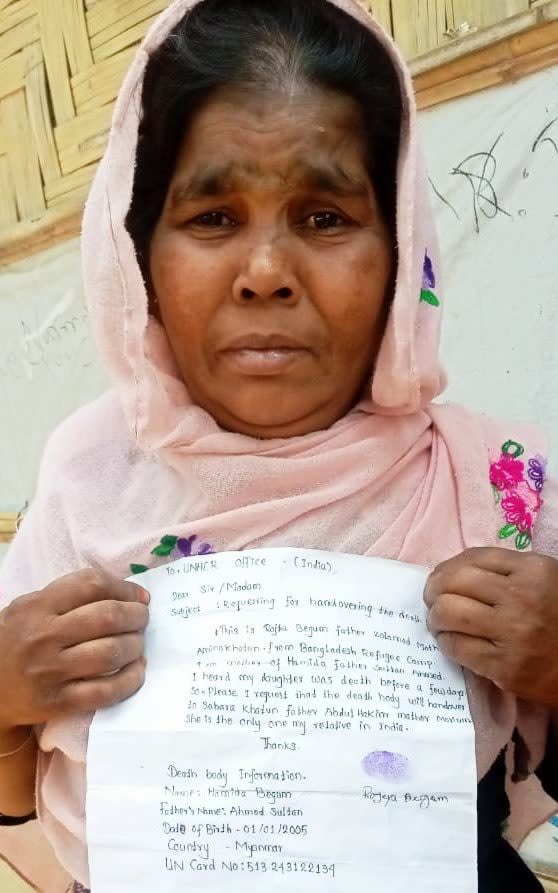 To, UNHCR Office - (India),
Dear Sir/Madam
Subject : Requesting for handovering the death
This is Begum father Kalamad
Amina Khatun. from Bangladesh Refugee Camp
mother of Hamida father Sultan Ahmed.
I heard my daughter was death before a few days
So, Please I request that the death body will handover
to Sahara Khatun father Abdul Hakim mother
She is the only one my relative in India.
Thanks.
Death body Information.
Name: Hamida Begum
Rojeya Beggam
Father's Name: Ahmod Sultan
Date of Birth - 01/01/2005
Country - Myanmar
UN Card No: 513 243122134